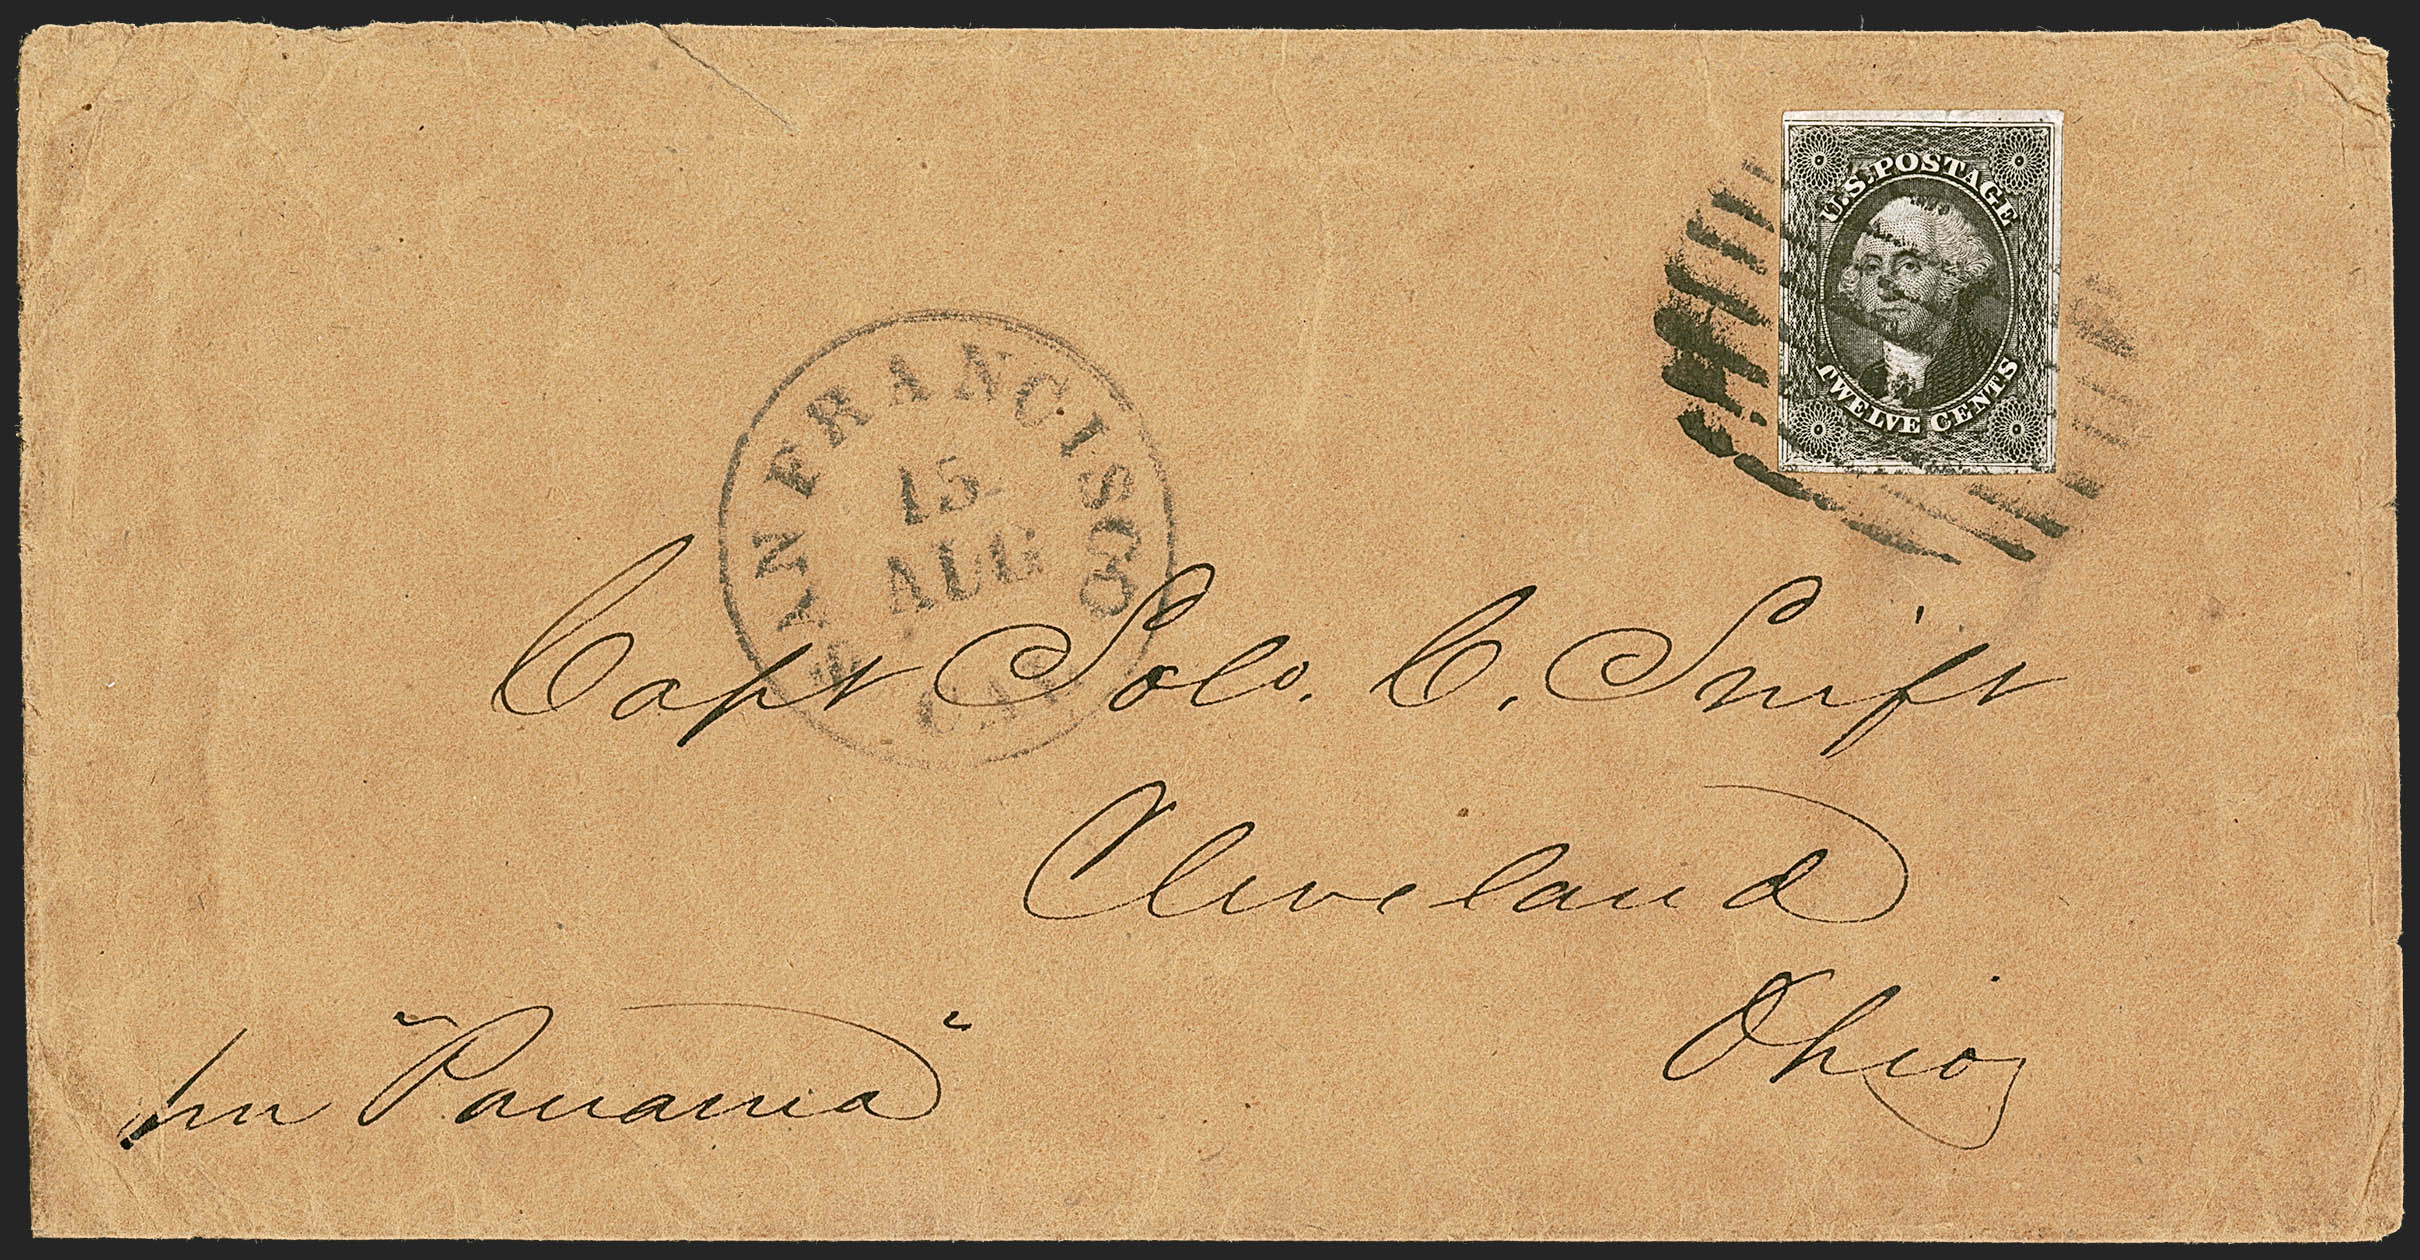 U.S. POSTAGE
TWELVE CENTS
SAN FRANCISCO
15
AUG
CAL.
Capt Solo. C. Swift
Cleveland
Ohio
per "Panama"